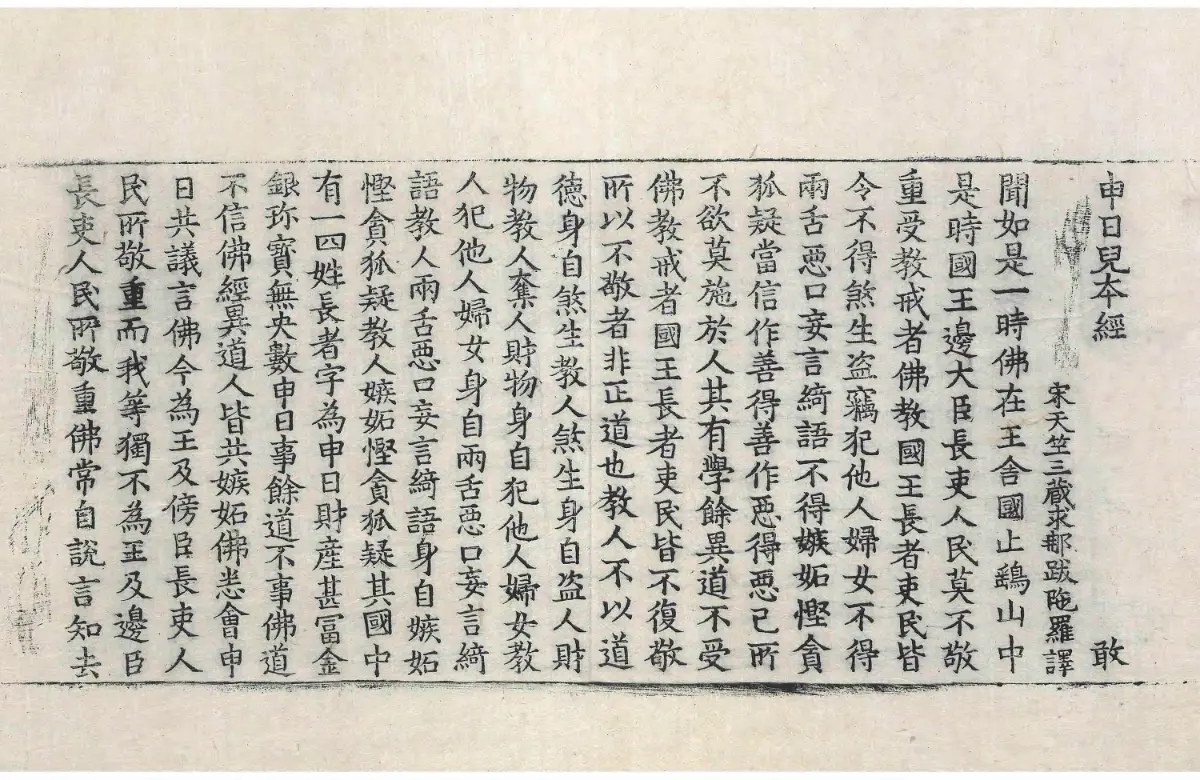 申日兒本經 敢
宋天竺三藏求那跋陁羅譯
聞如是一時佛在王舍國止鷂山中
是時國王邊大臣長吏人民莫不敬
重受教戒者佛教國王長者吏民皆
令不得煞生盜竊犯他人婦女不得
兩舌惡口妄言綺語不得嫉妬慳貪
狐疑當信作善得善作惡得惡己所
不欲莫施於人其有學餘異道不受
佛教戒者國王長者吏民皆不復敬
所以不敬者非正道也教人不以道
德身自煞生教人煞生身自盜人財
物教人奪人財物身自犯他人婦女教
人犯他人婦女身自兩舌惡口妄言綺
語教人兩舌惡口妄言綺語身自嫉妬
慳貪狐疑教人嫉妬慳貪狐疑其國中
有一四姓長者字為申日財産甚冨金
銀珎寶無央數申日事餘道不事佛道
不信佛經異道人皆共嫉妬佛悉會申
日共議言佛今為王及傍臣長吏人
民所敬重而我等獨不為王及邊臣
長吏人民所敬重佛常自說言知去